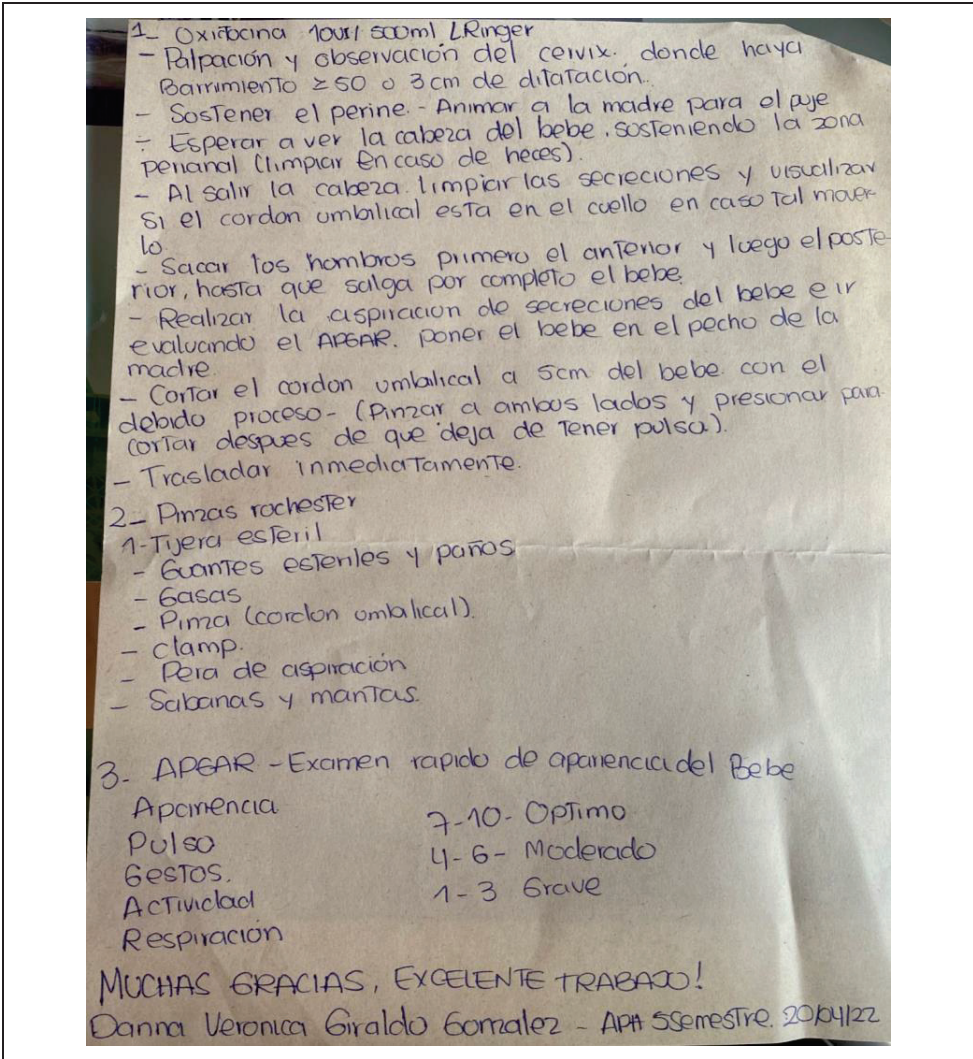 1- Oxitocina 10UI/ 500ml LRinger
- Palpación y observación del cervix. donde haya
Barrimiento ≥50 o 3cm de ditatación.
- Sostener el perine. - Animar a la madre para el puje
- Esperar a ver la cabeza del bebe. sosteniendo la zona
perianal (limpiar en caso de heces).
- Al salir la cabeza. limpiar las secreciones y visualizar
si el cordon umbilical esta en el cuello en caso tal mover-
lo.
- Sacar los hombros primero el anterior y luego el poste-
rior, hasta que salga por completo el bebe.
- Realizar la aspiracion de secreciones del bebe e ir
evaluando el APGAR. poner el bebe en el pecho de la
madre.
- Cortar el cordon umbilical a 5cm del bebe con el
debido proceso - (Pinzar a ambos lados y presionar para
cortar despues de que deja de tener pulso).
- Trasladar inmediatamente.
2- Pinzas rochester
1-Tijera esteril
- Guantes esteriles y paños
- Gasas
- Pinza (cordon umbalical).
- clamp.
- Pera de aspiración
- Sabanas y mantas.
3- APGAR - Examen rapido de apariencia del Bebe
Apariencia
Pulso
Gestos.
Actividad
Respiración
7-10- Optimo
4-6- Moderado
1-3 Grave
MUCHAS GRACIAS, EXCELENTE TRABAJO!
Danna Veronica Giraldo Gomzalez - APH 5Semestre. 20/04/22